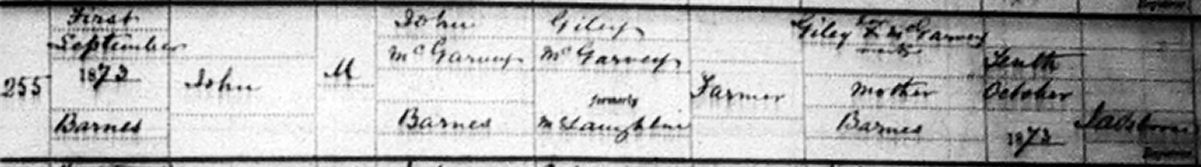 255
First
September
1873
Barnes
John
M
John
McGarvey
Barnes
Giley
McGarvey
formerly
McLaughlin
Farmer
Giley X McGarvey
her
mark
Mother
Barnes
Tenth
October
1873